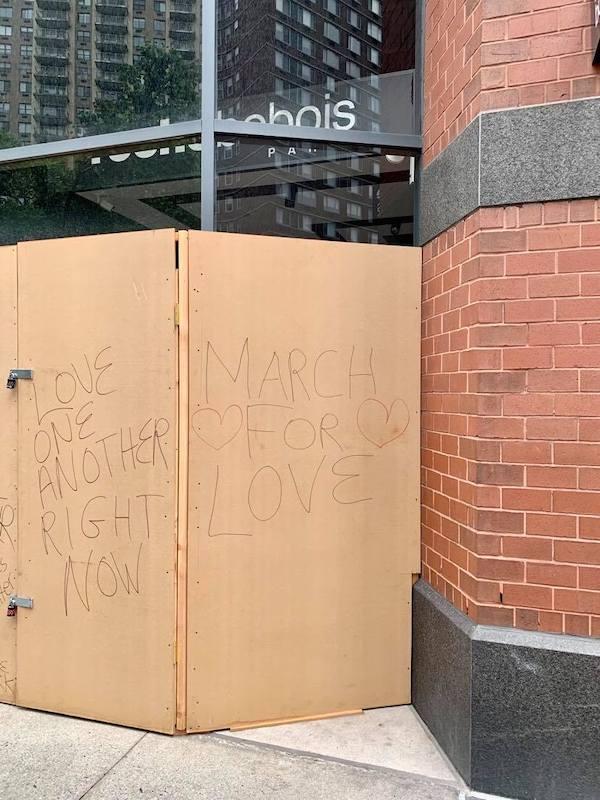 bois
PA
LOVE
ONE
ANOTHER
RIGHT
NOW
MARCH
FOR
LOVE